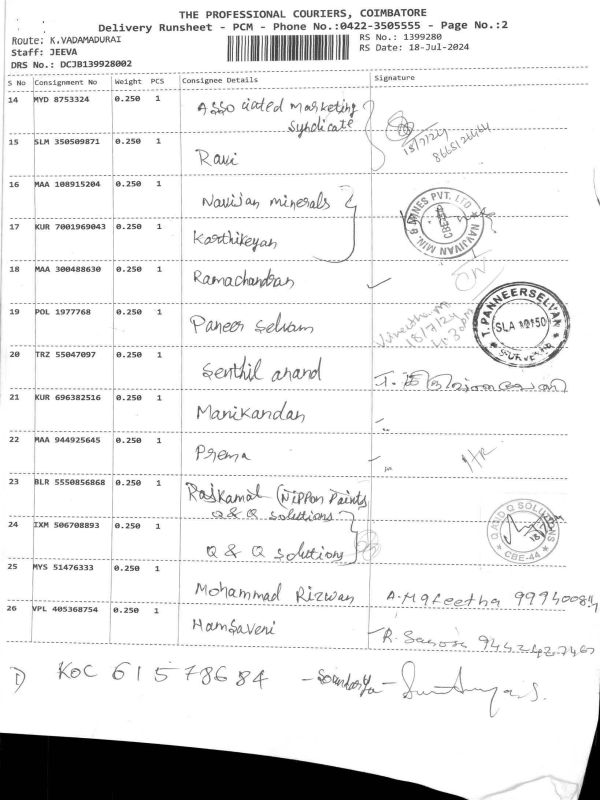 THE PROFESSIONAL COURIERS, COIMBATORE
Delivery Runsheet - PCM - Phone No.:0422-3505555 - Page No.:2
Route: K.VADAMADURAI
RS No.: 1399280
Staff: JEEVA
RS Date: 18-Jul-2024
DRS No.: DCJB139928002
S No Consignment No Weight PCS Consignee Details Signature
14 MYD 8753324 0.250 1 Associated marketing
syndicate
18/7/24
15 SLM 350509871 0.250 1 Ravi
16 MAA 108915204 0.250 1 Navijan minerals
NAVJIVAN MIN. & MINES PVT. LTD
CBE
17 KUR 7001969043 0.250 1 Karthikeyan
18 MAA 300488630 0.250 1 Ramachandran
19 POL 1977768 0.250 1 Paneer Selvam
18/7/24
4.30pm
T. PANNEERSELVAN
SURVEYOR
20 TRZ 55047097 0.250 1 Senthil anand
21 KUR 696382516 0.250 1 Manikandan
22 MAA 944925645 0.250 1 Prema
23 BLR 5550856868 0.250 1 Rajkamal (Nippon Paints
Q & Q solutions
24 IXM 506708893 0.250 1 Q & Q solutions
Q AND Q SOLUTIONS
CBE-44
25 MYS 51476333 0.250 1 Mohammad Rizwan
26 VPL 405368754 0.250 1 Hamsaveni
1) KOC 615 78684 - Soundarya -